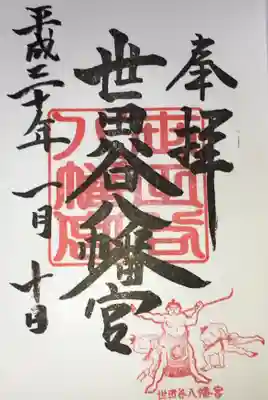 奉拝
世田谷八幡宮
平成二十年一月十日
世田谷八幡宮
世田谷八幡宮